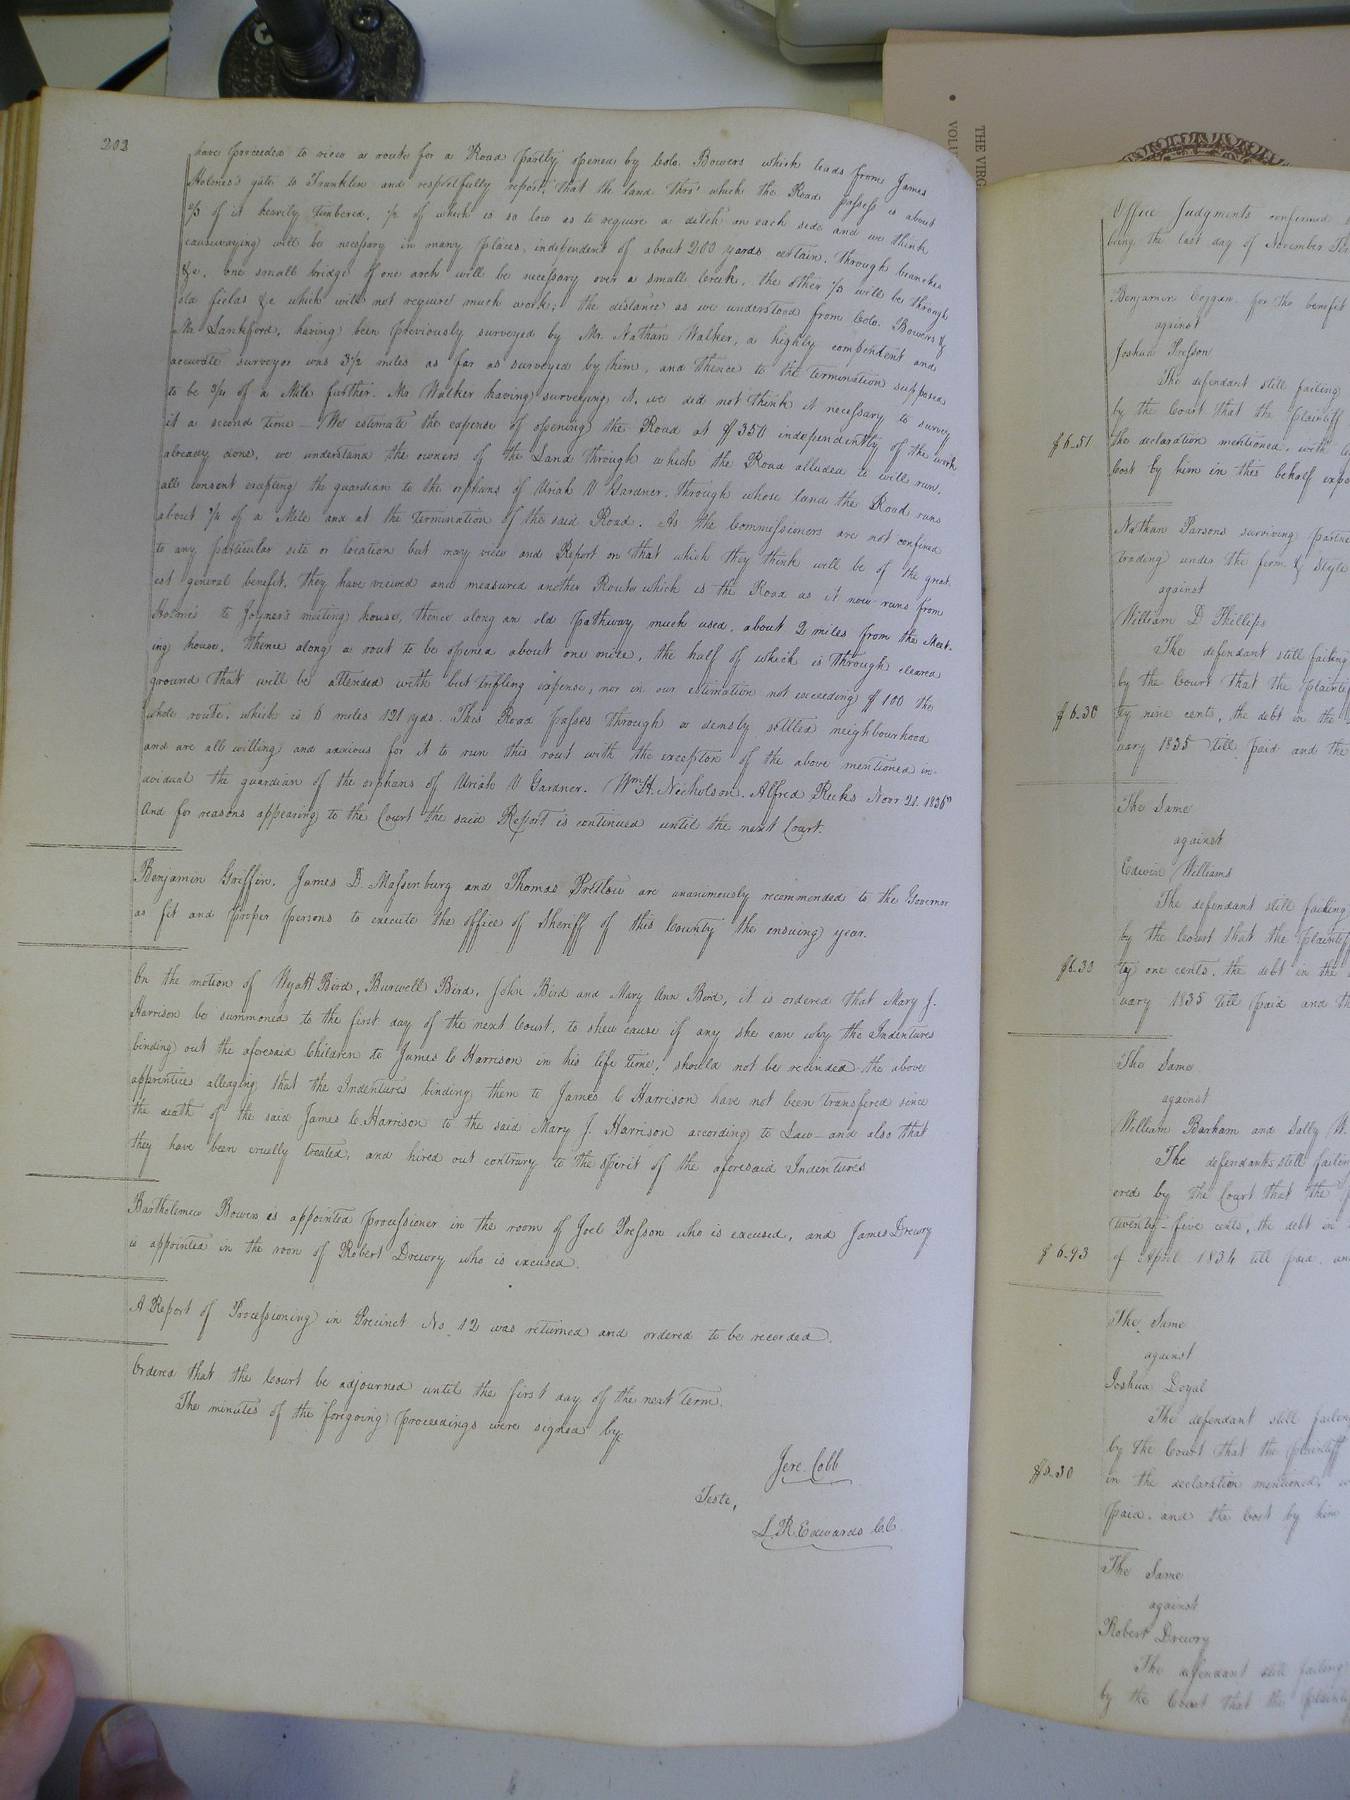 202
have proceeded to view a route for a Road partly opened by Colo. Bowers which leads from James
Holmes's gate to Franklin and respectfully report, that the land thro' which the Road passes is about
2/3 of it heavily timbered, 1/2 of which is so low as to require a ditch on each side and we think
causwaying will be necessary in many places, independent of about 200 yards certain, through branches
&c. one small bridge of one arch will be necessary over a small Creek, the other 1/3 will be through
old fields &c which will not require much work; the distance as we understood from Colo. Bowers &
Mr Lankford, having been previously surveyed by Mr. Nathan Walker, a highly competent and
accurate surveyor was 3 1/2 miles as far as surveyed by him, and thence to the termination supposed
to be 3/4 of a Mile further. Mr Walker having surveying it, we did not think it necessary to survey
it a second time — We estimate the expense of opening the Road at $350 independently of the work
already done, we understand the owners of the Land through which the Road alluded to will run,
all consent excepting the guardian to the orphans of Uriah V Gardner, through whose land the Road runs
about 3/4 of a Mile and at the termination of the said Road. As the Commissioners are not confined
to any particular site or location but may view and Report on that which they think will be of the great-
est general benefit, they have viewed and measured another Route which is the Road as it now runs from
Holmes to Joyner's meeting house, thence along an old pathway much used, about 2 miles from the Meet-
ing house, thence along a rout to be opened about one mile, the half of which is through cleared
ground that will be attended with but trifling expense, nor in our estimation not exceeding $100 the
whole route, which is 6 miles 121 yds. This Road passes through a densly settled neighbourhood
and are all willing and anxious for it to run this rout with the exception of the above mentioned in-
dividual the guardian of the orphans of Uriah V Gardner. Wm H. Nicholson. Alfred Ricks Novr 21. 1836"
And for reasons appearing to the Court the said Report is continued until the next Court.
Benjamin Griffin, James D. Massenburg and Thomas Pretlow are unanimously recommended to the Governor
as fit and proper persons to execute the office of Sheriff of this County the ensuing year.
On the motion of Wyatt Bird, Burwell Bird, John Bird and Mary Ann Bird, it is ordered that Mary J.
Harrison be summoned to the first day of the next Court, to shew cause if any she can why the Indentures
binding out the aforesaid Children to James C Harrison in his life time, should not be recinded the above
apprentices alleaging that the Indentures binding them to James C Harrison have not been transfered since
the death of the said James C. Harrison to the said Mary J. Harrison according to Law — and also that
they have been cruelly treated, and hired out contrary to the spirit of the aforesaid Indentures
Bartholemew Bowers is appointed processioner in the room of Joel Presson who is excused, and James Drewry
is appointed in the room of Robert Drewry who is excused.
A Report of Processioning in Precinct No. 12 was returned and ordered to be recorded.
Ordered that the Court be adjourned until the first day of the next term.
The minutes of the foregoing proceedings were signed by
Jere. Cobb
Teste,
L.R. Edwards C.C.
THE VIRG
VOLU
Office Judgments confirmed
being the last day of November
Benjamin Coggan for the benefit
against
Joshua Presson
The defendant still failing
by the Court that the plaintiff
$6.51 the declaration mentioned, with
Cost by him in this behalf
Nathan Parsons surviving partner
trading under the firm & Style
against
William D Phillips
The defendant still failing
by the Court that the plaintiff
$6.30 ty nine cents, the debt in the
uary 1835 till paid and the
The Same
against
Edwin Williams
The defendant still failing
by the Court that the plaintiff
$6.30 ty one cents, the debt in the
uary 1835 till paid and
The Same
against
William Barham and Sally W.
The defendants still failing
ered by the Court that the
twenty-five cents, the debt in
$6.93 of April 1834 till paid, an
The Same
against
Joshua Doyal
The defendant still failing
by the Court that the plaintiff
$5.30 in the declaration mentioned,
paid, and the Cost by him
The Same
against
Robert Drewry
The defendant still failing
by the Court that the plaintiff